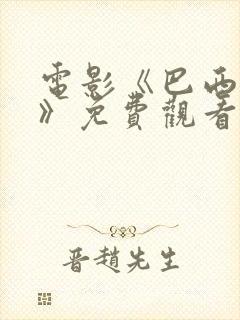 電影《巴西
》免費觀看
晋趙先生